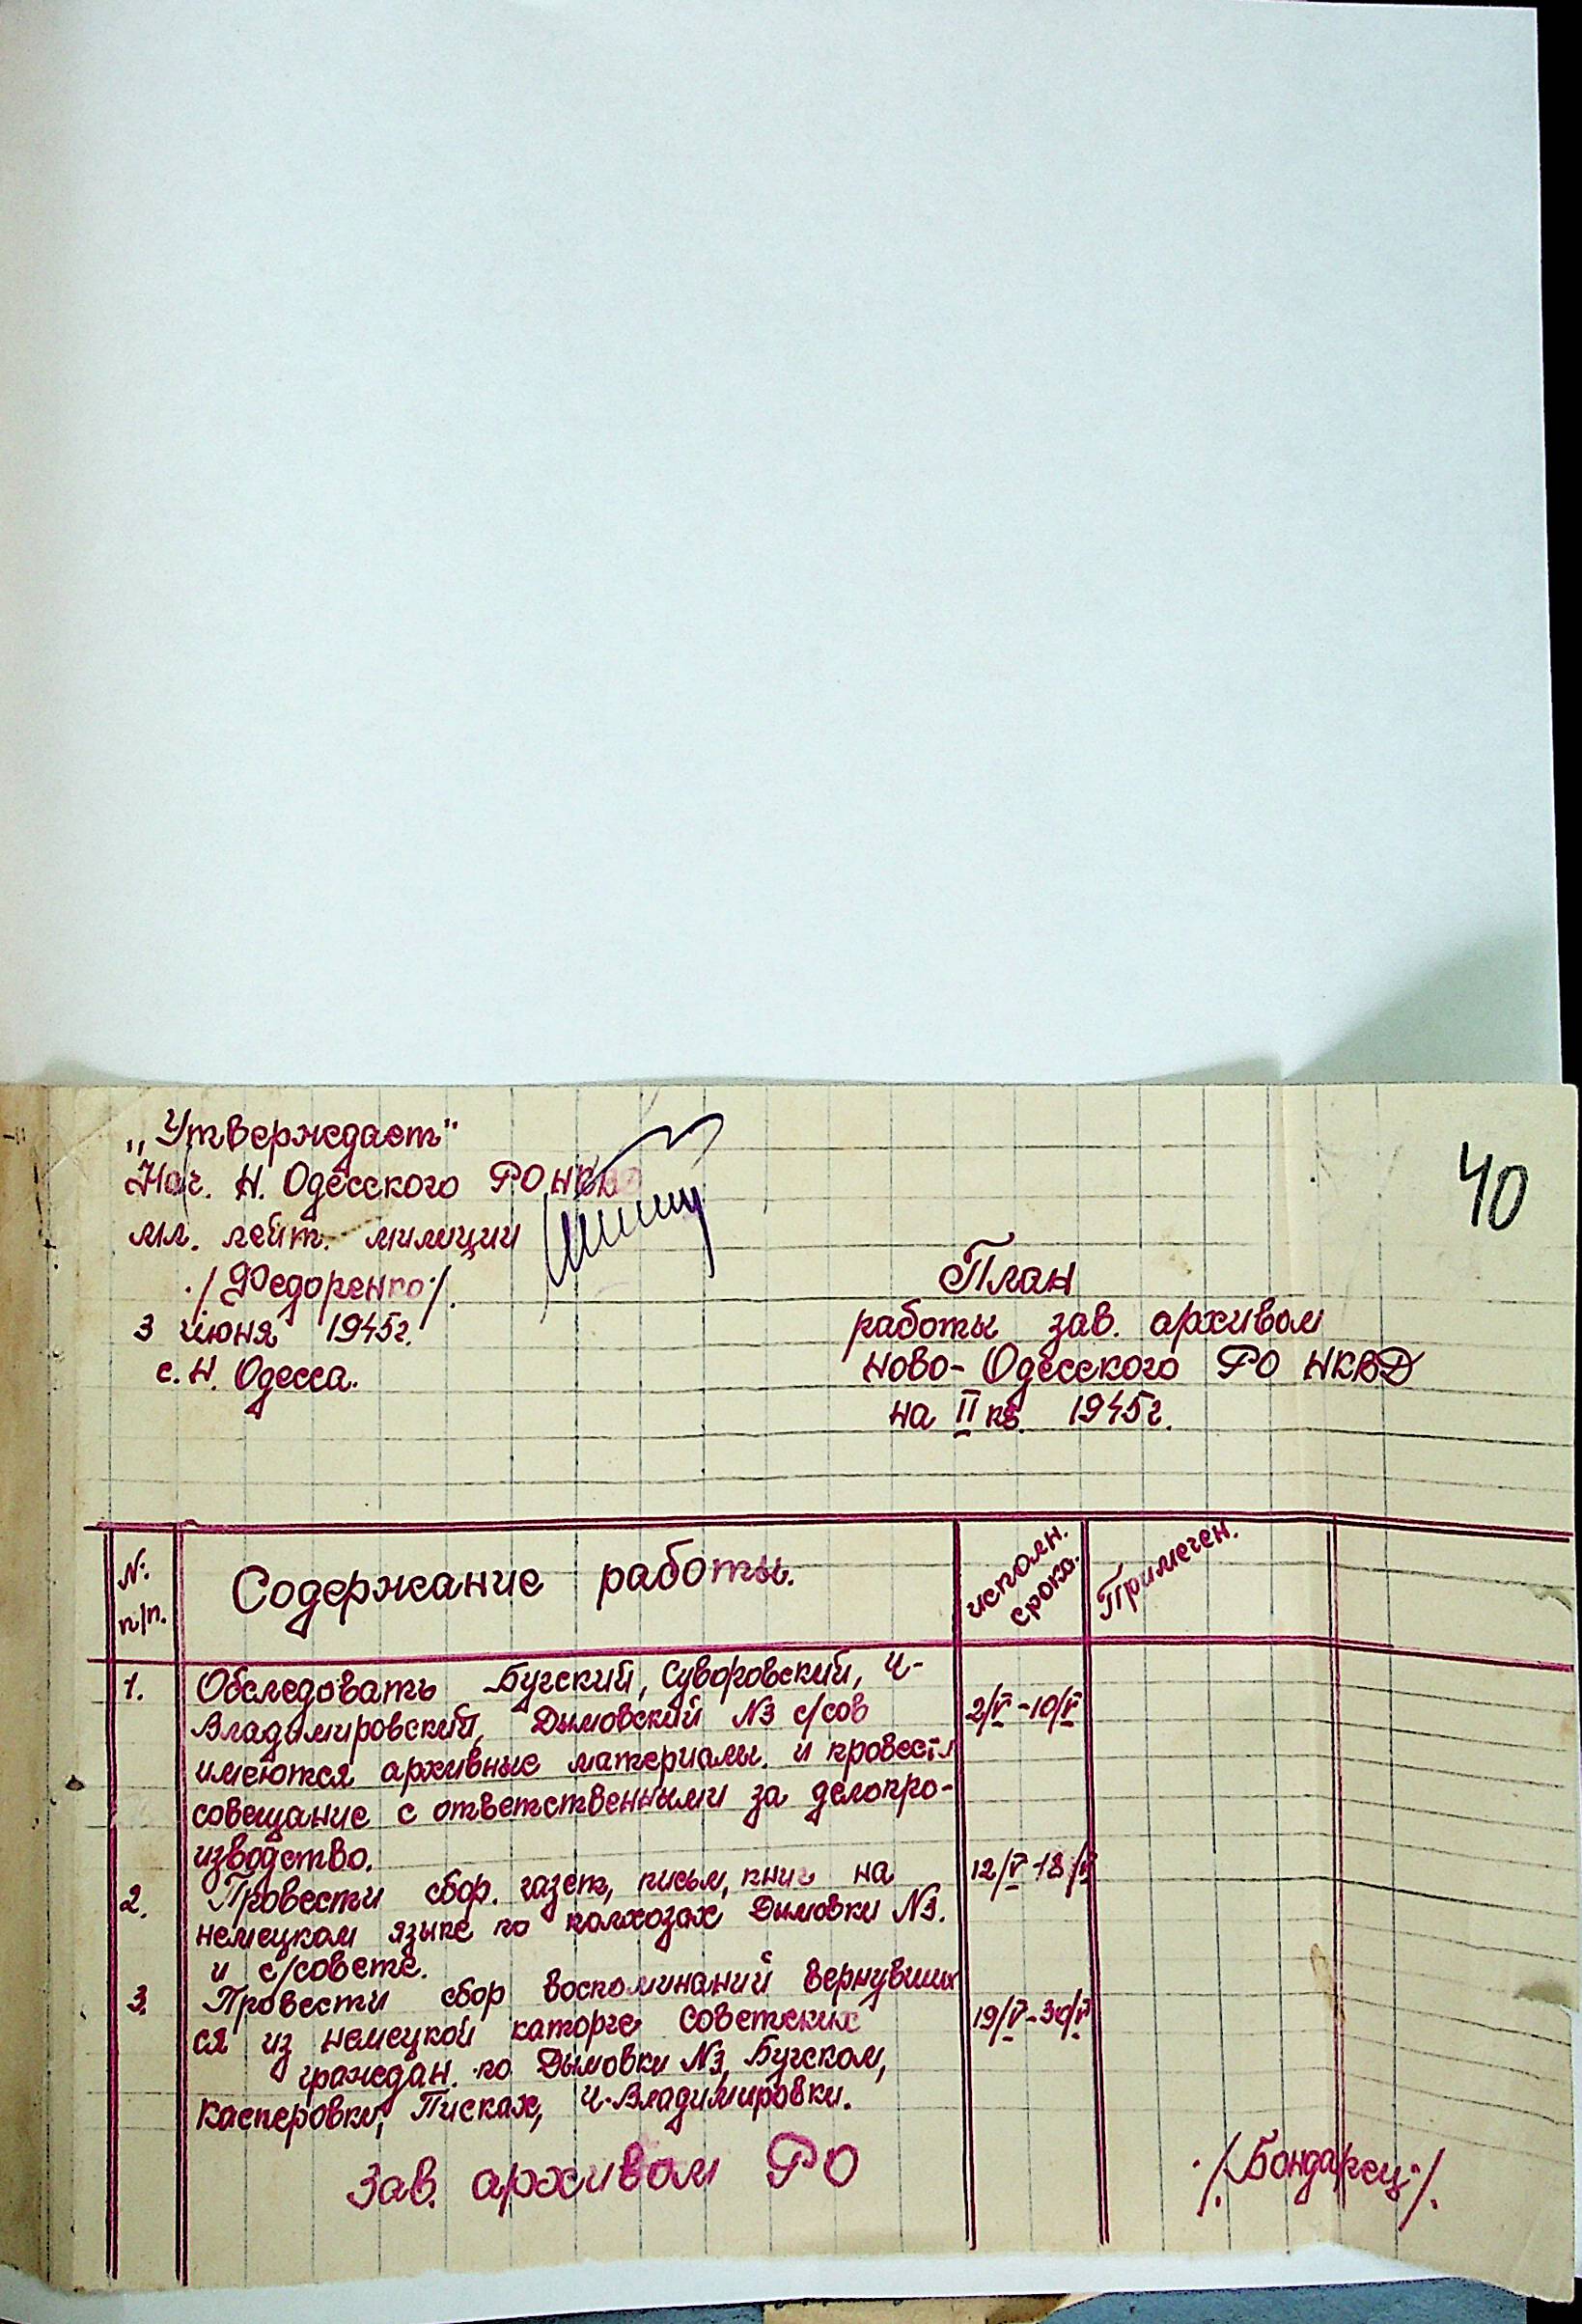 „Утверждает"
Нач. Н. Одесского РО НКВД
мл. лейт. милиции
./Федоренко/.
3 июня 1945г.
с. Н. Одесса.
40
План
работы зав. архивом
Ново-Одесского РО НКВД
на II кв. 1945г.
№ п/п.
Содержание работы.
исполн. срока.
Примечен.
1. Обследовать Бугский, Суворовский, Ч-
Владимировский, Дымовский №3 с/сов 2/V-10/V
имеются архивные материалы. и провести
совещание с ответственными за делопро-
изводство.
2. Провести сбор. газет, письм, книг на 12/V-18/V
немецком языке по колхозах Дымовки №3.
и с/совете.
3. Провести сбор воспоминаний вернувших
ся из немецкой каторге советских 19/V-30/V
граждан. по Дымовки №3, Бугском,
Касперовки, Писках, Ч-Владимировки.
Зав. архивом РО ./Бондарец/.